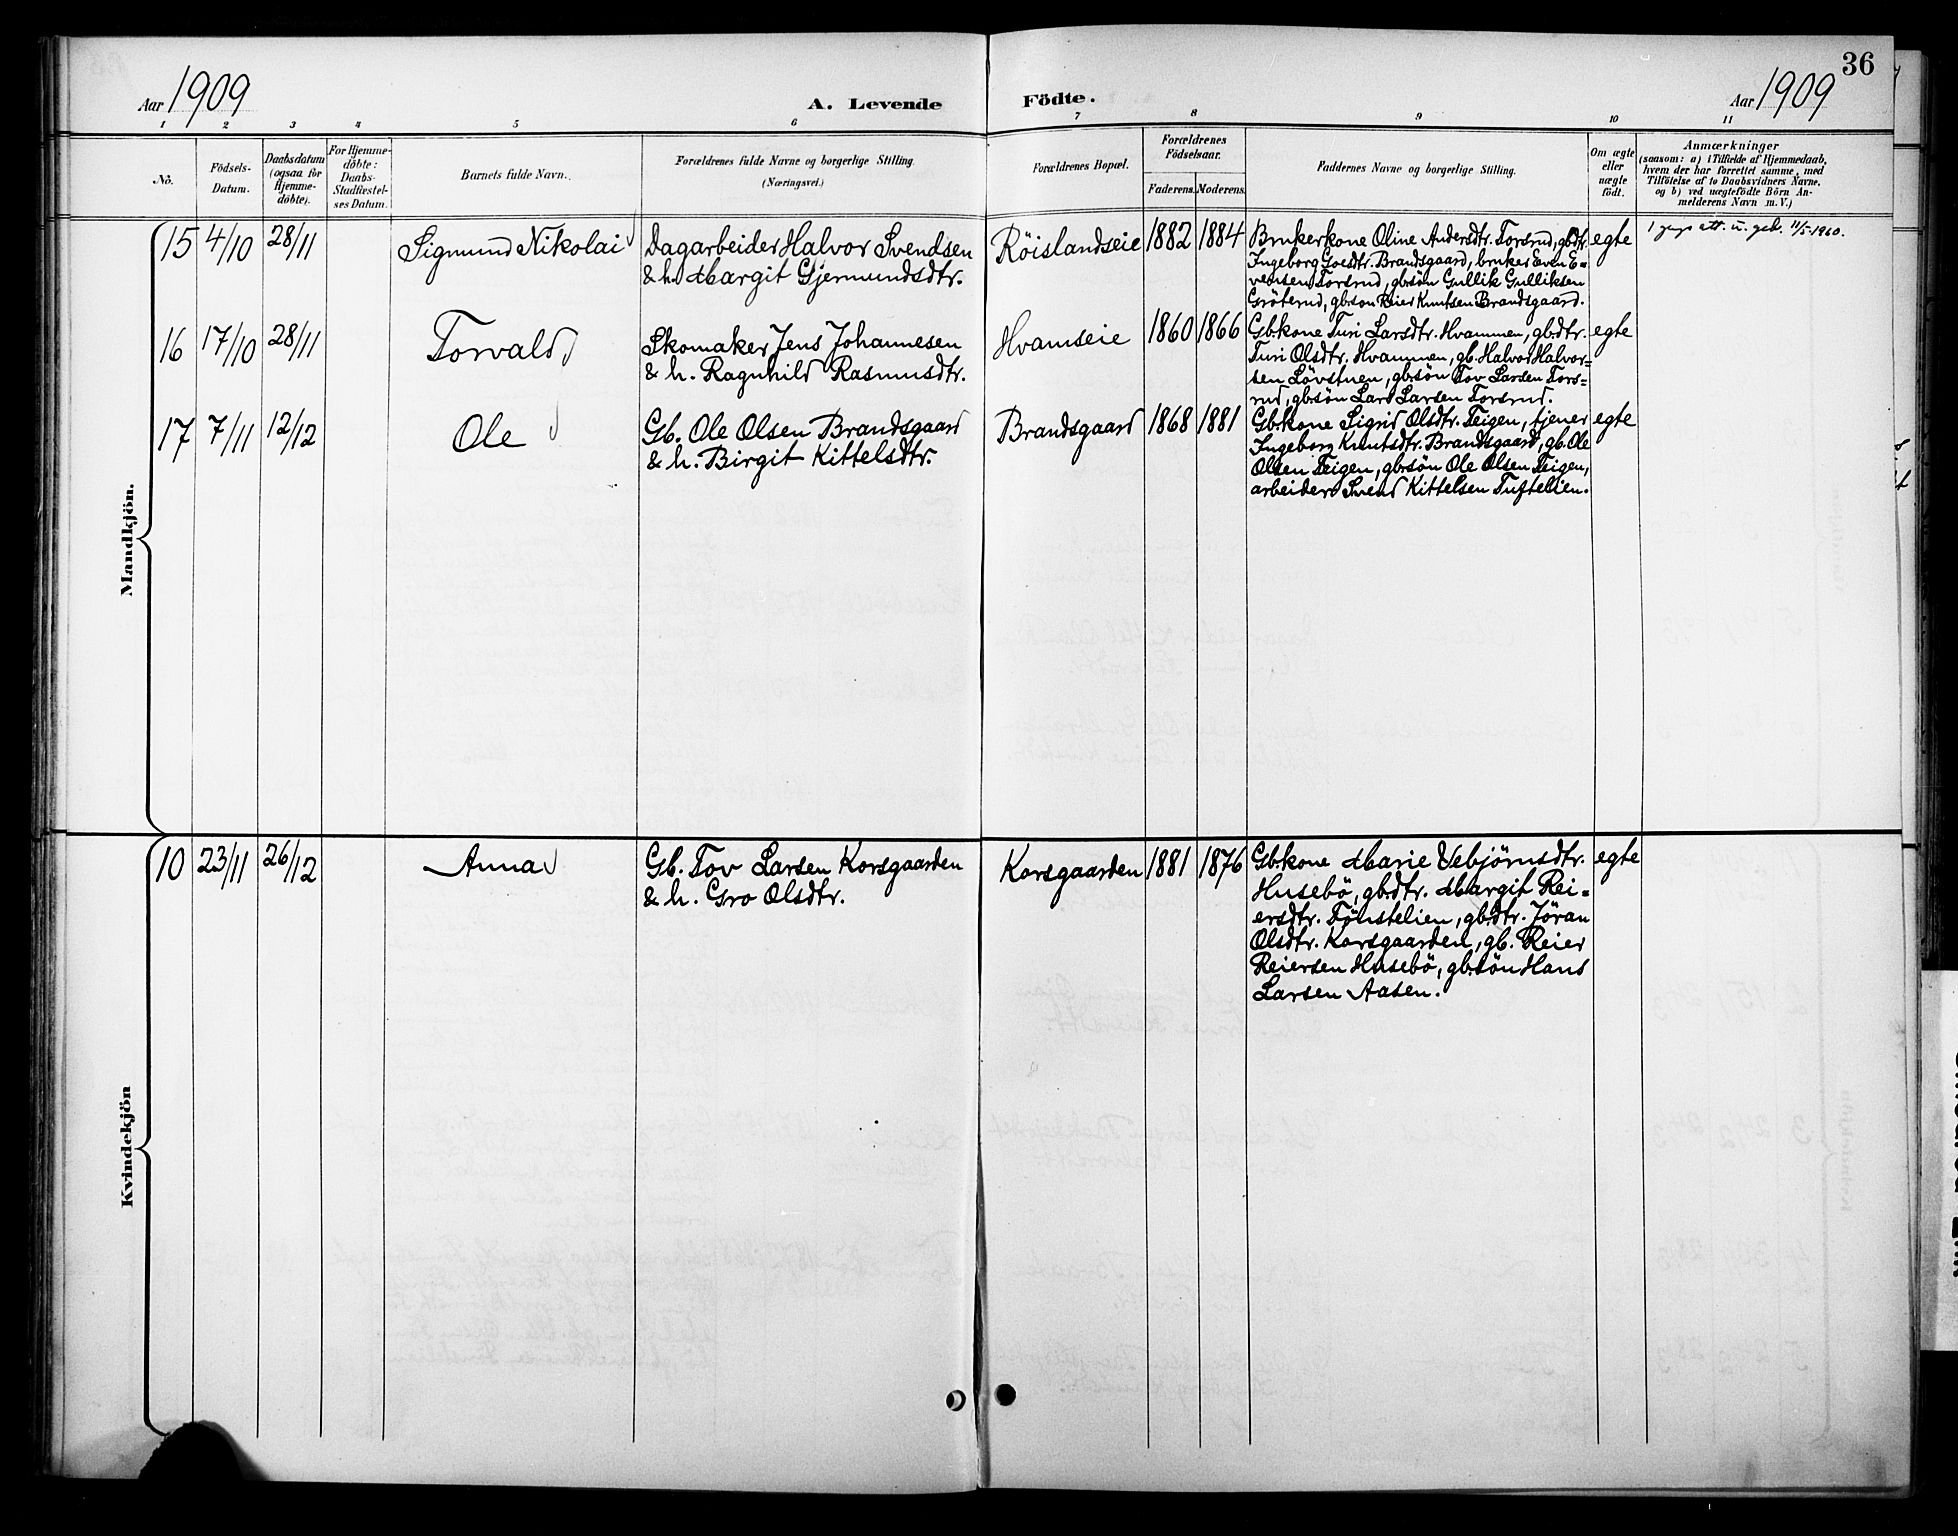 36
Aar 1909
A. Levende
Födte.
Aar 1909
1 2 3 4 5 6 7 8 9 10 11
No.
Födsels-Datum.
Daabsdatum (ogsaa for Hjemme-döbte).
For Hjemme-döbte: Daabs-Stadfæstel-ses Datum.
Barnets fulde Navn.
Forældrenes fulde Navne og borgerlige Stilling.
(Næringsvei.)
Forældrenes Bopæl.
Forældrenes Födselsaar.
Faderens. Moderens.
Faddernes Navne og borgerlige Stilling.
Om ægte eller uægte födt.
Anmærkninger
(saasom: a) i Tilfælde af Hjemmedaab,
hvem der har forrettet samme, med
Tilföielse af to Daabsvidners Navne,
og b) ved uægtefödte Börn An-
melderens Navn m. V.)
Mandkjön.
15 4/10 28/11 Sigmund Nikolai
Dagarbeider Halvor Svendsen
& h. Margit Gjermundsdtr.
Röislandseie 1882 1884
Brukerkone Oline Andersdtr. Torsrud, gbdtr.
Ingeborg Goesdtr. Brandsgaard, bruker Even E-
vensen Torsrud, gbsön Gullik Gulliksen
Gröterud, gbsön Reier Knutsen Brandsgaard.
egte
1 att. u. geb. 1960.
16 17/10 28/11 Torvald
Skomaker Jens Johannesen
& h. Ragnhild Rasmusdtr.
Hvamseie 1860 1866
Gbkone Turi Larsdtr. Hvammen, gbdtr.
Turi Olsdtr. Hvammen, gb. Halvor Halvor=
sen Lövstuen, gbsön Tov Larsen Tors=
rud, gbsön Lars Larsen Torsrud.
egte
17 7/11 12/12 Ole
Gb. Ole Olsen Brandsgaard
& h. Birgit Kittelsdtr.
Brandsgaard 1868 1881
Gbkone Sigrid Olsdtr. Teigen, tjener
Ingeborg Knutsdtr. Brandsgaard, gb. Ole
Olsen Teigen, gbsön Ole Olsen Teigen,
arbeider Svend Kittelsen Tuftelien.
egte
Kvindekjön
10 23/11 26/12 Anna
Gb. Tov Larsen Korsgaarden
& h. Gro Olsdtr.
Korsgaarden 1881 1876
Gbkone Marie Vebjörnsdtr.
Husebö, gbdtr. Margit Rei=
ersdtr. Tönstelien, gbdtr. Jöran
Olsdtr. Korsgaarden, gb. Reier
Reiersen Husebö, gbsön Hans
Larsen Aasen.
egte